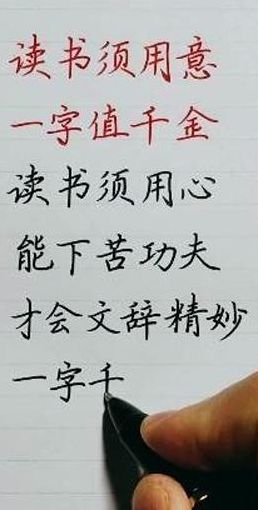 读书须用意
一字值千金
读书须用心
能下苦功夫
才会文辞精妙
一字千